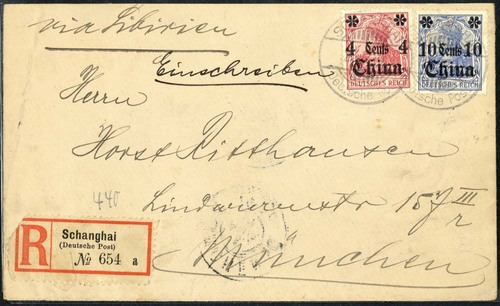 via Sibirien
Einschreiben
4 Cents 4
China
DEUTSCHES REICH
10 Cents 10
China
DEUTSCHES REICH
Deutsche Post
Herrn
Horst Ritthausen
Lindwurmstr 15
III
r
München
440
R
Schanghai
(Deutsche Post)
№ 654 a